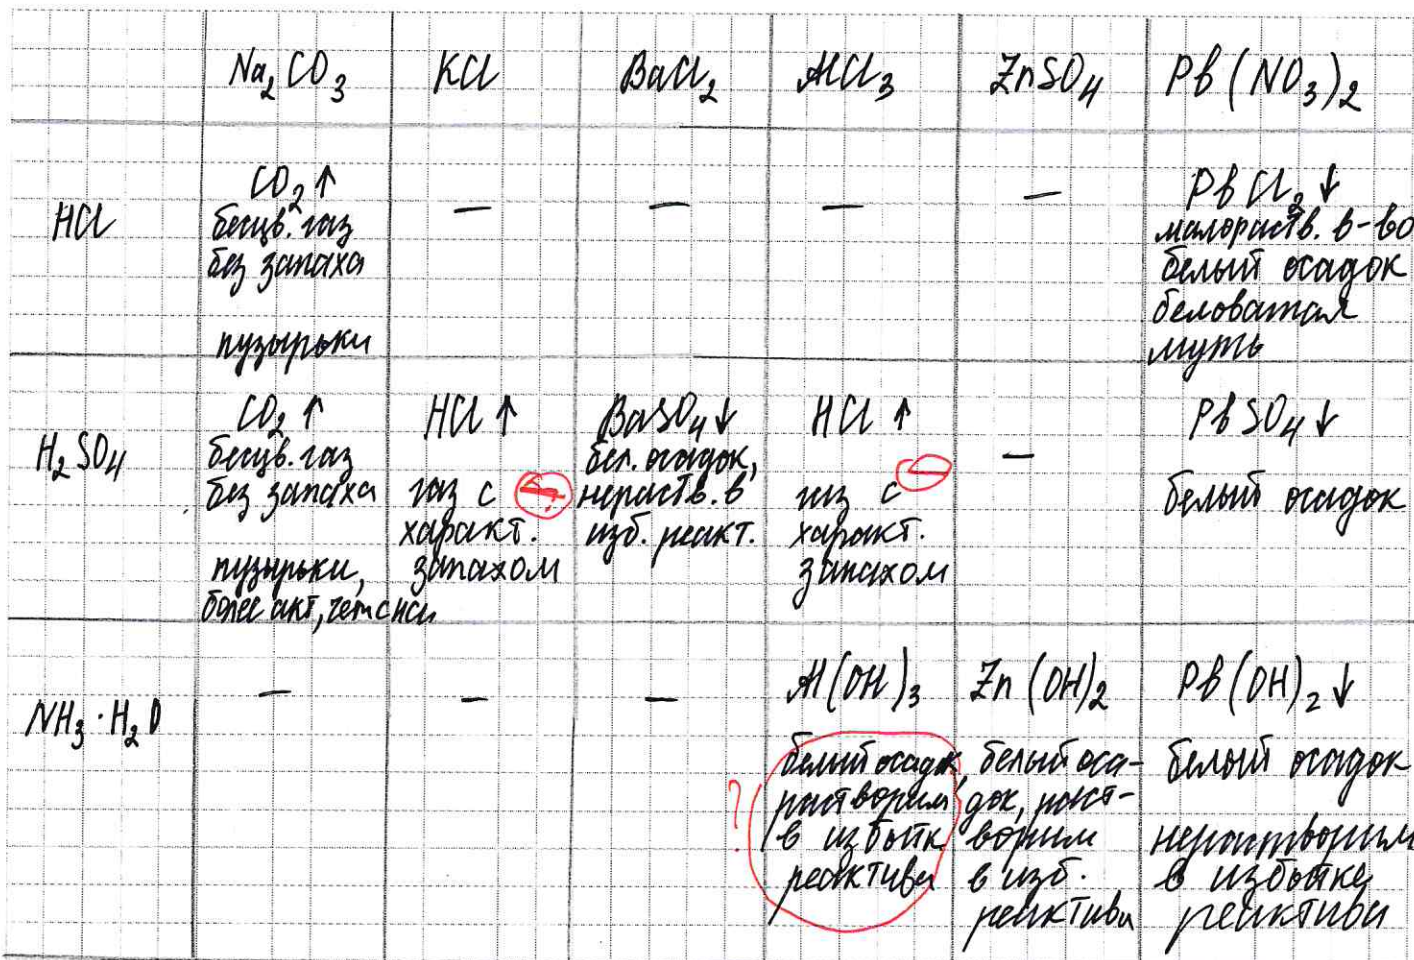 Na₂CO₃ KCl BaCl₂ AlCl₃ ZnSO₄ Pb(NO₃)₂
HCl
CO₂↑
бесцв. газ
без запаха
пузырьки
—
—
—
—
PbCl₂↓
малораств. в-во
белый осадок
беловатая
муть
H₂SO₄
CO₂↑
бесцв. газ
без запаха
пузырьки,
более акт, чем с HCl
HCl↑
газ с
характ.
запахом
BaSO₄↓
бел. осадок,
нераств. в
изб. реакт.
HCl↑
газ с
характ.
запахом
—
—
PbSO₄↓
белый осадок
NH₃·H₂O
—
—
—
Al(OH)₃
белый осадок,
растворим
в избытк
реактива
?
Zn(OH)₂
белый оса-
док, раст-
ворим
в изб.
реактива
Pb(OH)₂↓
белый осадок
нерастворим
в избытке
реактива